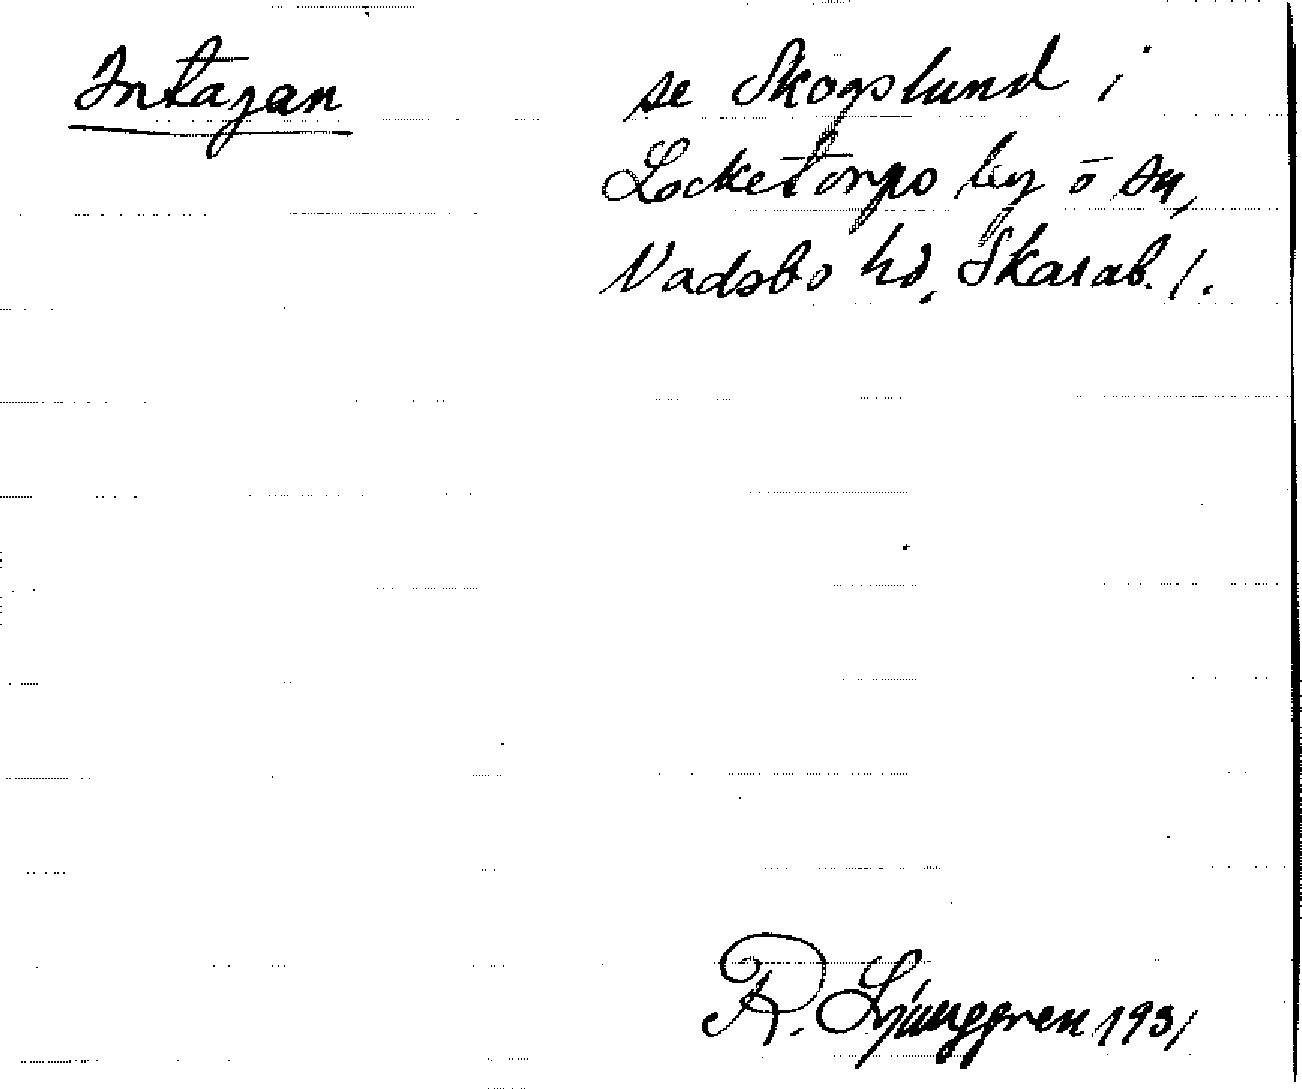 Intagan
se Skogslund i
Locketorps by o sn,
Vadsbo hd, Skarab. l.
R. Ljunggren 1931